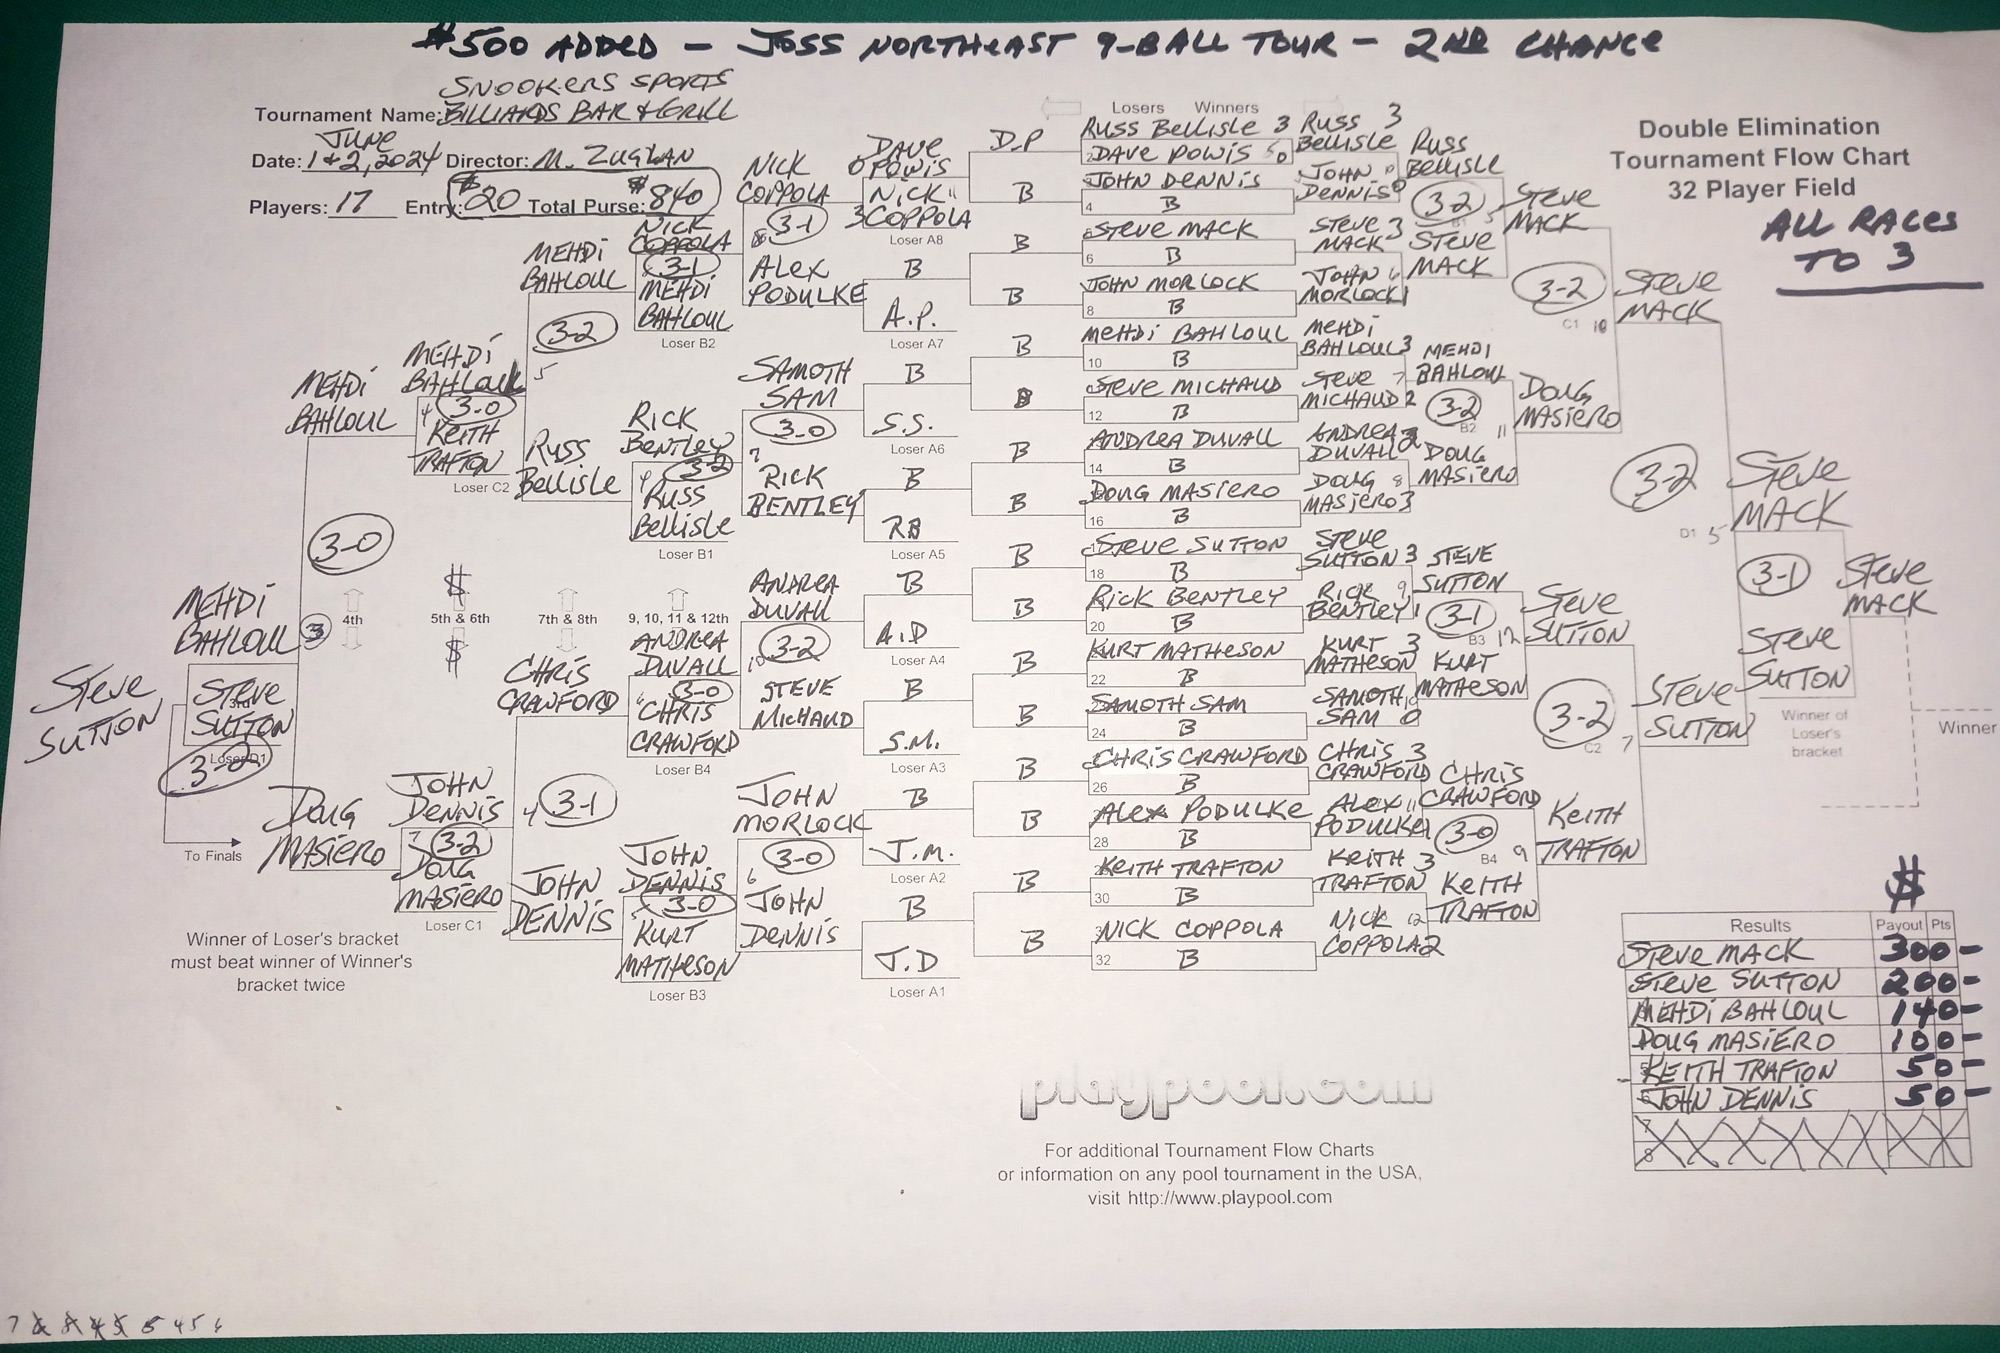 $500 ADDED - JOSS NORTHEAST 9-BALL TOUR - 2ND CHANCE
SNOOKERS SPORTS
Tournament Name: BILLIARDS BAR & GRILL
JUNE
Date: 1 & 2, 2024 Director: M. ZUGLAN
Players: 17 Entry: $20 Total Purse: $840
Double Elimination
Tournament Flow Chart
32 Player Field
ALL RACES
TO 3
Losers Winners
RUSS BELLISLE 3
DAVE POWIS 0
JOHN DENNIS
4 B
STEVE MACK
6 B
JOHN MORLOCK
8 B
MEHDI BAHLOUL
10 B
STEVE MICHAUD
12 B
ANDREA DUVALL
14 B
DOUG MASIERO
16 B
STEVE SUTTON
18 B
RICK BENTLEY
20 B
KURT MATHESON
22 B
SAMOTH SAM
24 B
CHRIS CRAWFORD
26 B
ALEX PODULKE
28 B
KEITH TRAFTON
30 B
NICK COPPOLA
32 B
RUSS 3
BELLISLE
JOHN
DENNIS 0
STEVE 3
MACK
JOHN
MORLOCK 1
MEHDI
BAHLOUL 3
STEVE 7
MICHAUD 2
ANDREA 2
DUVALL
DOUG 8
MASIERO 3
STEVE
SUTTON 3
RICK 9
BENTLEY 1
KURT 3
MATHESON
SAMOTH 10
SAM 0
CHRIS 3
CRAWFORD
ALEX 11
PODULKE 1
KEITH 3
TRAFTON
NICK 12
COPPOLA 2
RUSS
BELLISLE
3-2
B1
STEVE
MACK
MEHDI
BAHLOUL
3-2
B2
DOUG
MASIERO
STEVE
SUTTON
3-1
B3
KURT
MATHESON
CHRIS
CRAWFORD
3-0
B4
KEITH
TRAFTON
STEVE
MACK
3-2
C1 10
DOUG
MASIERO
11
STEVE
SUTTON
12
3-2
C2 7
KEITH
TRAFTON
9
STEVE
MACK
3-2
D1 5
STEVE
SUTTON
STEVE
MACK
3-1
STEVE
SUTTON
Winner of
Loser's
bracket
STEVE
MACK
Winner
D.P
B
B
B
B
B
B
B
B
B
B
B
B
B
B
B
DAVE
POWIS 0
NICK
3 COPPOLA
Loser A8
B
A.P.
Loser A7
B
S.S.
Loser A6
B
RB
Loser A5
B
A.D
Loser A4
B
S.M.
Loser A3
B
J.M.
Loser A2
B
J.D
Loser A1
NICK
COPPOLA
3-1
ALEX
PODULKE
SAMOTH
SAM
3-0
7
RICK
BENTLEY
ANDREA
DUVALL
3-2
10
STEVE
MICHAUD
JOHN
MORLOCK
3-0
6
JOHN
DENNIS
NICK
COPPOLA
3-1
MEHDI
BAHLOUL
Loser B2
RICK
BENTLEY
3-2
RUSS
BELLISLE
Loser B1
9, 10, 11 & 12th
ANDREA
DUVALL
3-0
CHRIS
CRAWFORD
Loser B4
JOHN
DENNIS
3-0
KURT
MATHESON
Loser B3
MEHDI
BAHLOUL
3-2
5
RUSS
BELLISLE
7th & 8th
CHRIS
CRAWFORD
3-1
4
JOHN
DENNIS
MEHDI
BAHLOUL
4 3-0
KEITH
TRAFTON
Loser C2
$
5th & 6th
$
JOHN
DENNIS
3-2
DOUG
MASIERO
Loser C1
MEHDI
BAHLOUL
3-0
4th
3
DOUG
MASIERO
MEHDI
BAHLOUL
STEVE
3rd
SUTTON
Loser D1
3-2
STEVE
SUTTON
To Finals
Winner of Loser's bracket
must beat winner of Winner's
bracket twice
$
Results Payout Pts
STEVE MACK 300-
STEVE SUTTON 200-
MEHDI BAHLOUL 140-
DOUG MASIERO 100-
5 KEITH TRAFTON 50-
6 JOHN DENNIS 50-
7
8
playpool.com
For additional Tournament Flow Charts
or information on any pool tournament in the USA,
visit http://www.playpool.com